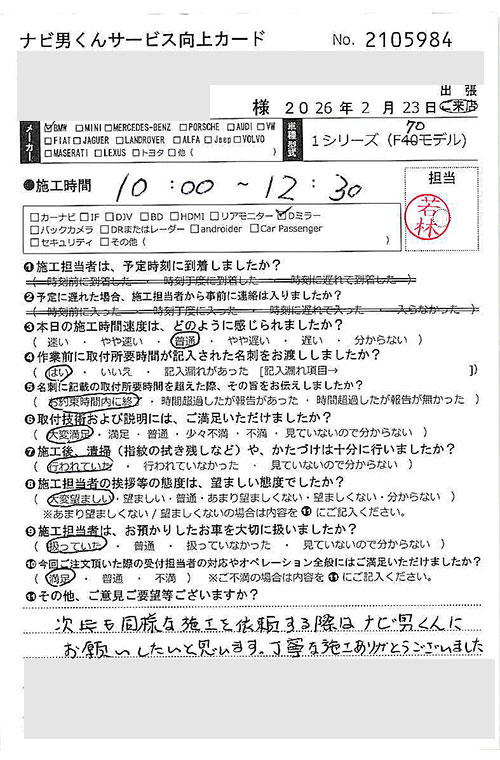 ナビ男くんサービス向上カード No. 2105984
出張
様 2026年2月23日 ご来店
メーカー
☑BMW □MINI □MERCEDES-BENZ □PORSCHE □AUDI □VW
□FIAT □JAGUER □LANDROVER □ALFA □Jeep □VOLVO
□MASERATI □LEXUS □トヨタ □他（ ）
車種型式
70
1シリーズ（F40モデル）
●施工時間 10:00 ~ 12:30
担当
若林
□カーナビ □IF □DJV □BD □HDMI □リアモニター ☑Dミラー
□バックカメラ □DRまたはレーダー □androider □Car Passenger
□セキュリティ □その他（ ）
❶施工担当者は、予定時刻に到着しましたか？
（ 時刻前に到着した ・ 時刻丁度に到着した ・ 時刻に遅れて到着した ）
❷予定に遅れた場合、施工担当者から事前に連絡は入りましたか？
（ 時刻前に入った ・ 時刻丁度に入った ・ 時刻に遅れて入った ・ 入らなかった ）
❸本日の施工時間速度は、どのように感じられましたか？
（ 速い ・ やや速い ・ 普通 ・ やや遅い ・ 遅い ・ 分からない ）
❹作業前に取付所要時間が記入された名刺をお渡ししましたか？
（ はい ・ いいえ ・ 記入漏れがあった [記入漏れ項目→ ]）
❺名刺に記載の取付所要時間を超えた際、その旨をお伝えしましたか？
（ お約束時間内に終了 ・ 時間超過したが報告があった ・ 時間超過したが報告が無かった ）
❻取付技術および説明には、ご満足いただけましたか？
（ 大変満足 ・ 満足 ・ 普通 ・ 少々不満 ・ 不満 ・ 見ていないので分からない ）
❼施工後、清掃（指紋の拭き残しなど）や、かたづけは十分に行いましたか？
（ 行われていた ・ 行われていなかった ・ 見ていないので分からない ）
❽施工担当者の挨拶等の態度は、望ましい態度でしたか？
（ 大変望ましい ・ 望ましい ・ 普通 ・ あまり望ましくない ・ 望ましくない ・ 分からない ）
※あまり望ましくない / 望ましくないの場合は内容を⓫にご記入ください。
❾施工担当者は、お預かりしたお車を大切に扱いましたか？
（ 扱っていた ・ 普通 ・ 扱っていなかった ・ 見ていないので分からない ）
❿今回ご注文頂いた際の受付担当者の対応やオペレーション全般にはご満足いただけましたか？
（ 満足 ・ 普通 ・ 不満 ） ※ご不満の場合は内容を⓫にご記入ください。
⓫その他、ご意見ご要望等ございますか？
次回も同様な施工を依頼する際はナビ男くんに
お願いしたいと思います。丁寧な施工ありがとうございました